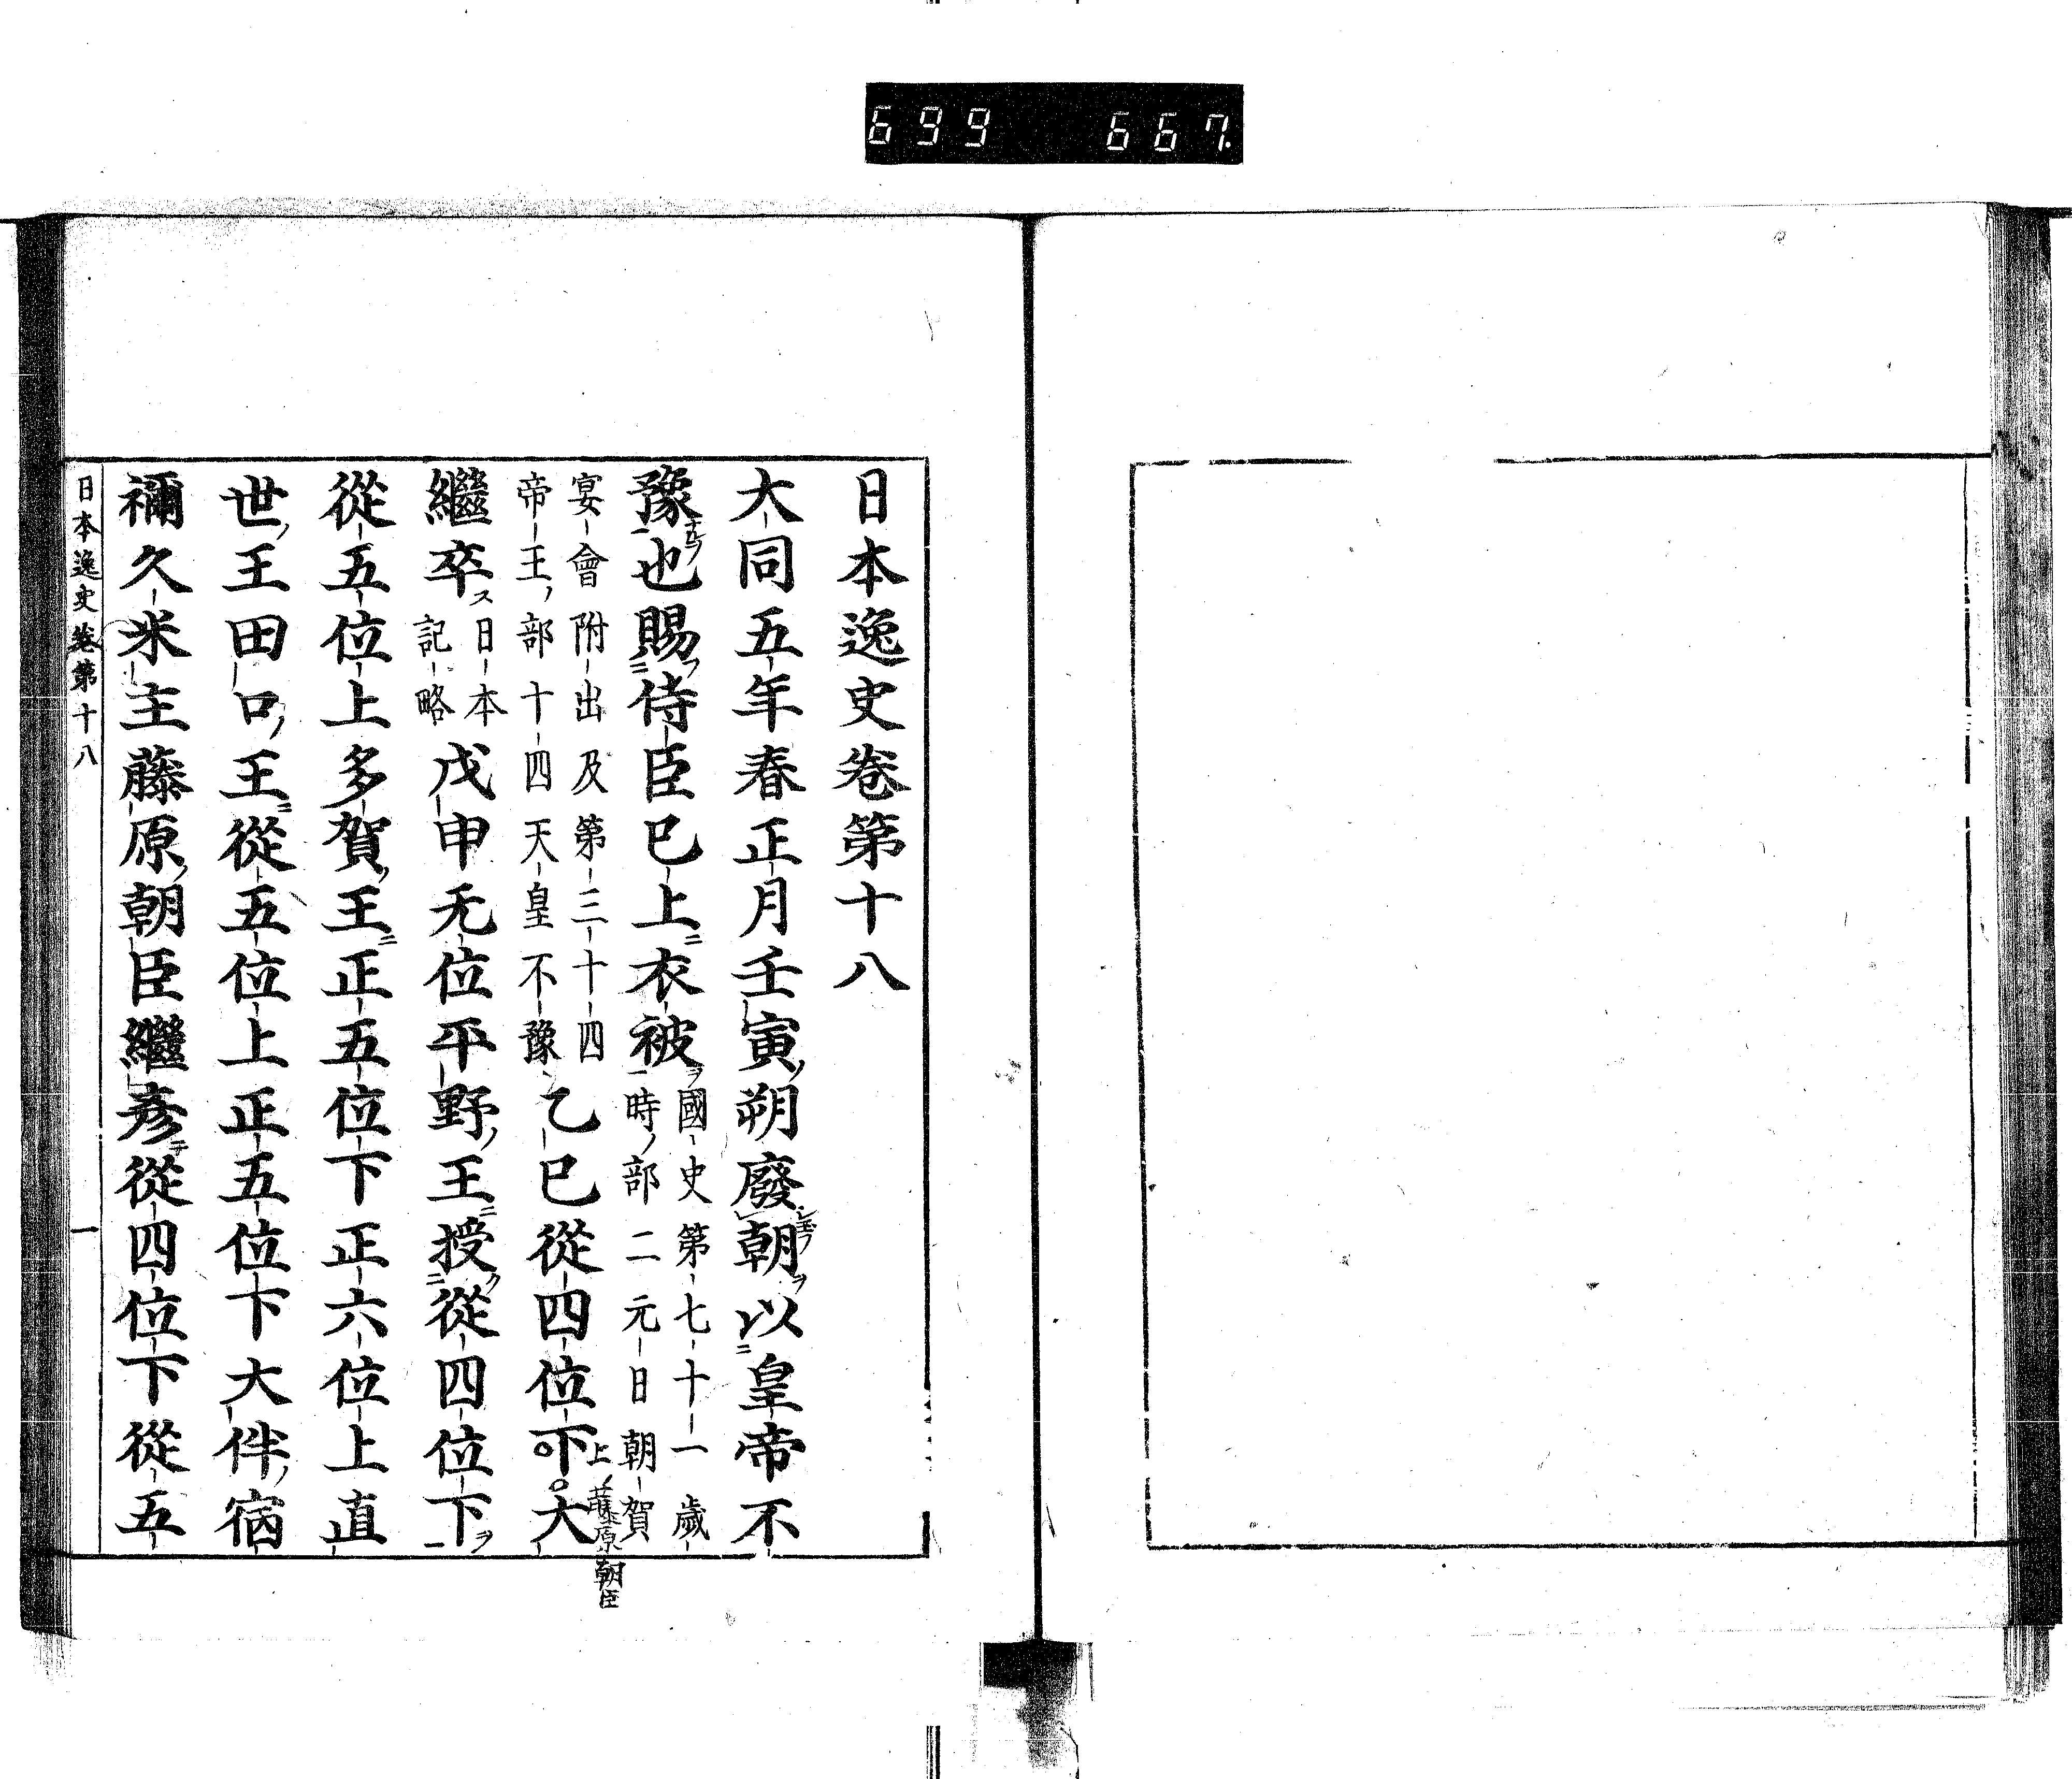 699 667
日本逸史卷第十八
大同五年春正月壬寅朔廢朝以皇帝不
豫也賜侍臣已上衣被
國史第七十一歲
時部二元日朝賀
宴會附出及第三十四
帝王部十四天皇不豫
乙巳從四位下大
上藤原朝臣
繼卒
日本
記略
戊申无位平野王授從四位下
從五位上多賀王正五位下正六位上直
世王田口王從五位上正五位下大伴宿
禰久米主藤原朝臣繼彥從四位下從五
日本逸史卷第十八 一